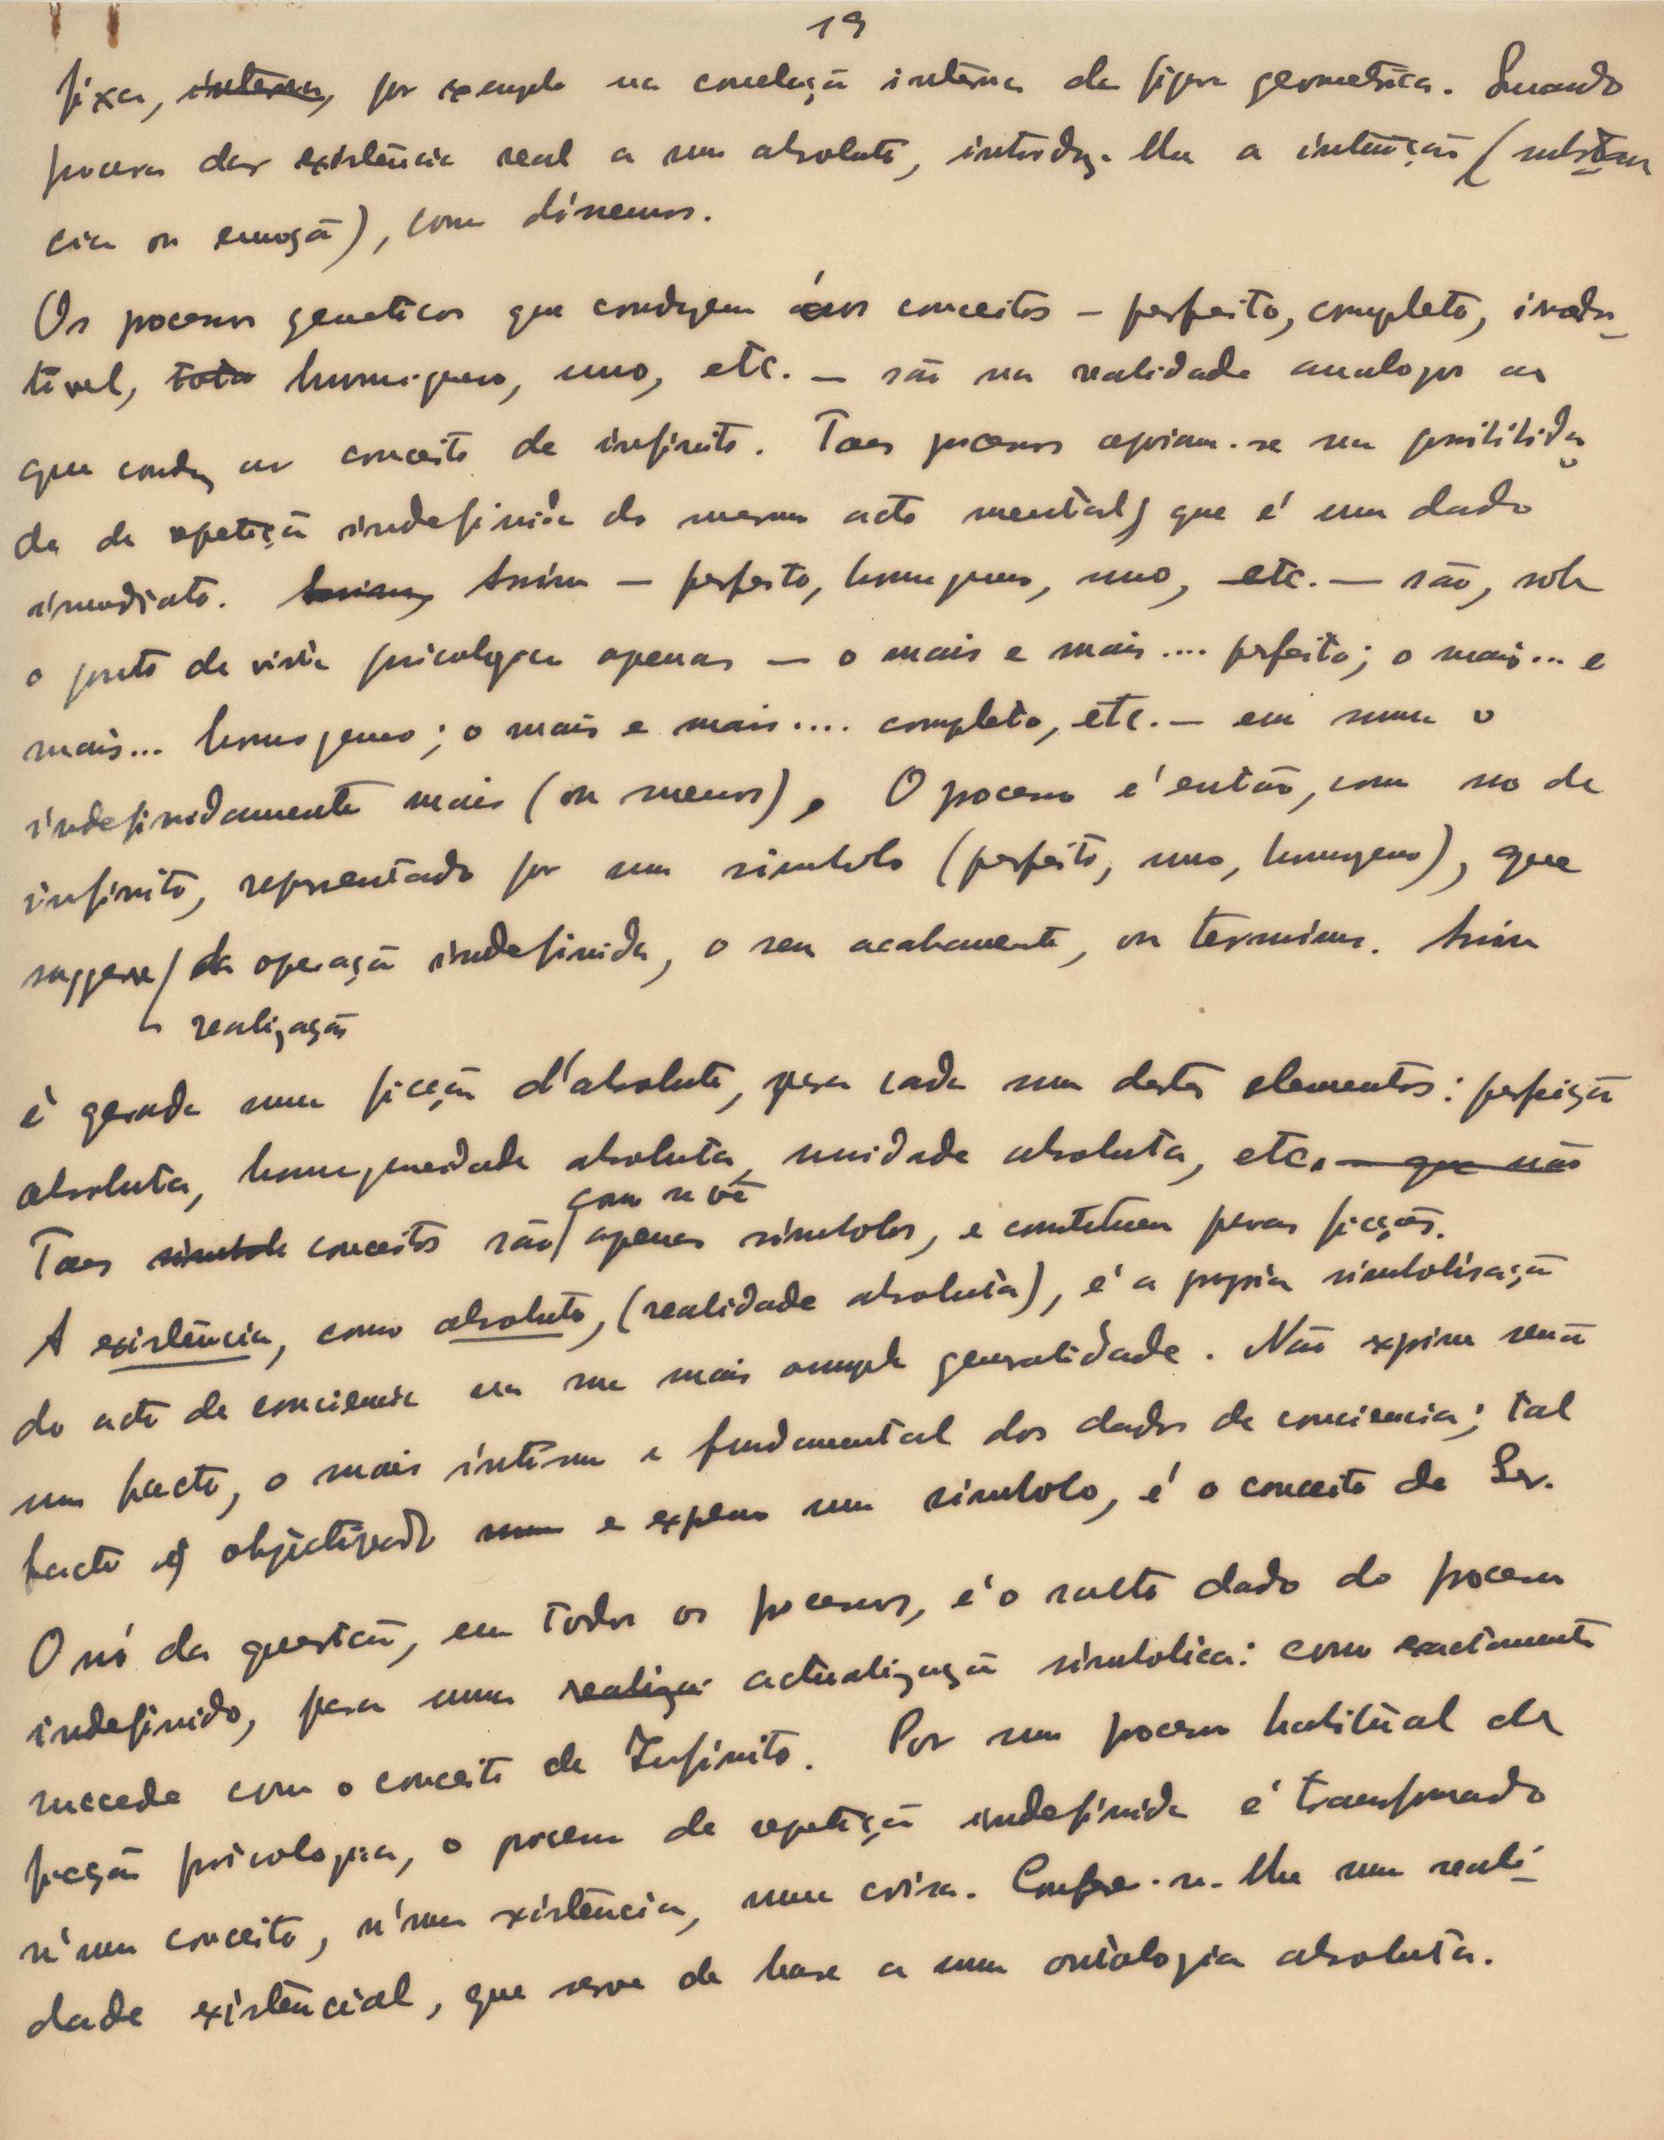 19
fixa, interna, por exemplo na correlação interna da figura geometrica. Quando
procura dar existência real a um absoluto, introduz-lhe a intuição (substan
cia ou emoção), como dissemos.
Os processos geneticos que conduzem aos conceitos – perfeito, completo, irredu_
tivel, toto homogeneo, uno, etc. – são na realidade analogos ao
que conduz ao conceito de infinito. Taes processos apoiam-se na possibilida
de de repetição indefinida do mesmo acto mental, que é um dado
immediato. Assim, Assim – perfeito, homogeneo, uno, etc. – são, sob
o ponto de vista psicologico apenas – o mais e mais .... perfeito; o mais... e
mais... homogeneo; o mais e mais .... completo, etc. – em suma o
indefinidamente mais (ou menos). O processo é então, como no de
infinito, representado por um simbolo (perfeito, uno, homogeneo), que
suggere / da operação indefinida, o seu acabamento, ou terminus. Assim
a realização
é gerada uma ficção d'absoluto, para cada um destes elementos: perfeição
absoluta, homogeneidade absoluta, unidade absoluta, etc. – que não
como se vê
Taes simbolo conceitos são / apenas simbolos, e constituem puras ficções.
A existência, como absoluto, (realidade absoluta), é a propria simbolisação
do acto de conciencia na sua mais ampla generalidade. Não exprime senão
um facto, o mais intimo e fundamental dos dados da conciencia; tal
facto é objectivado num e expresso num simbolo, é o conceito de Ser.
O nó da questão, em todos os processos, é o salto dado do processo
indefinido, para uma realiza- actualização simbolica: como exactamente
succede com o conceito de Infinito. Por um processo habitual de
ficção psicologica, o processo de repetição indefinida é transformado
n'um conceito, n'uma existência, numa coisa. Confere-se-lhe uma reali-
dade existêncial, que serve de base a uma ontologia absoluta.